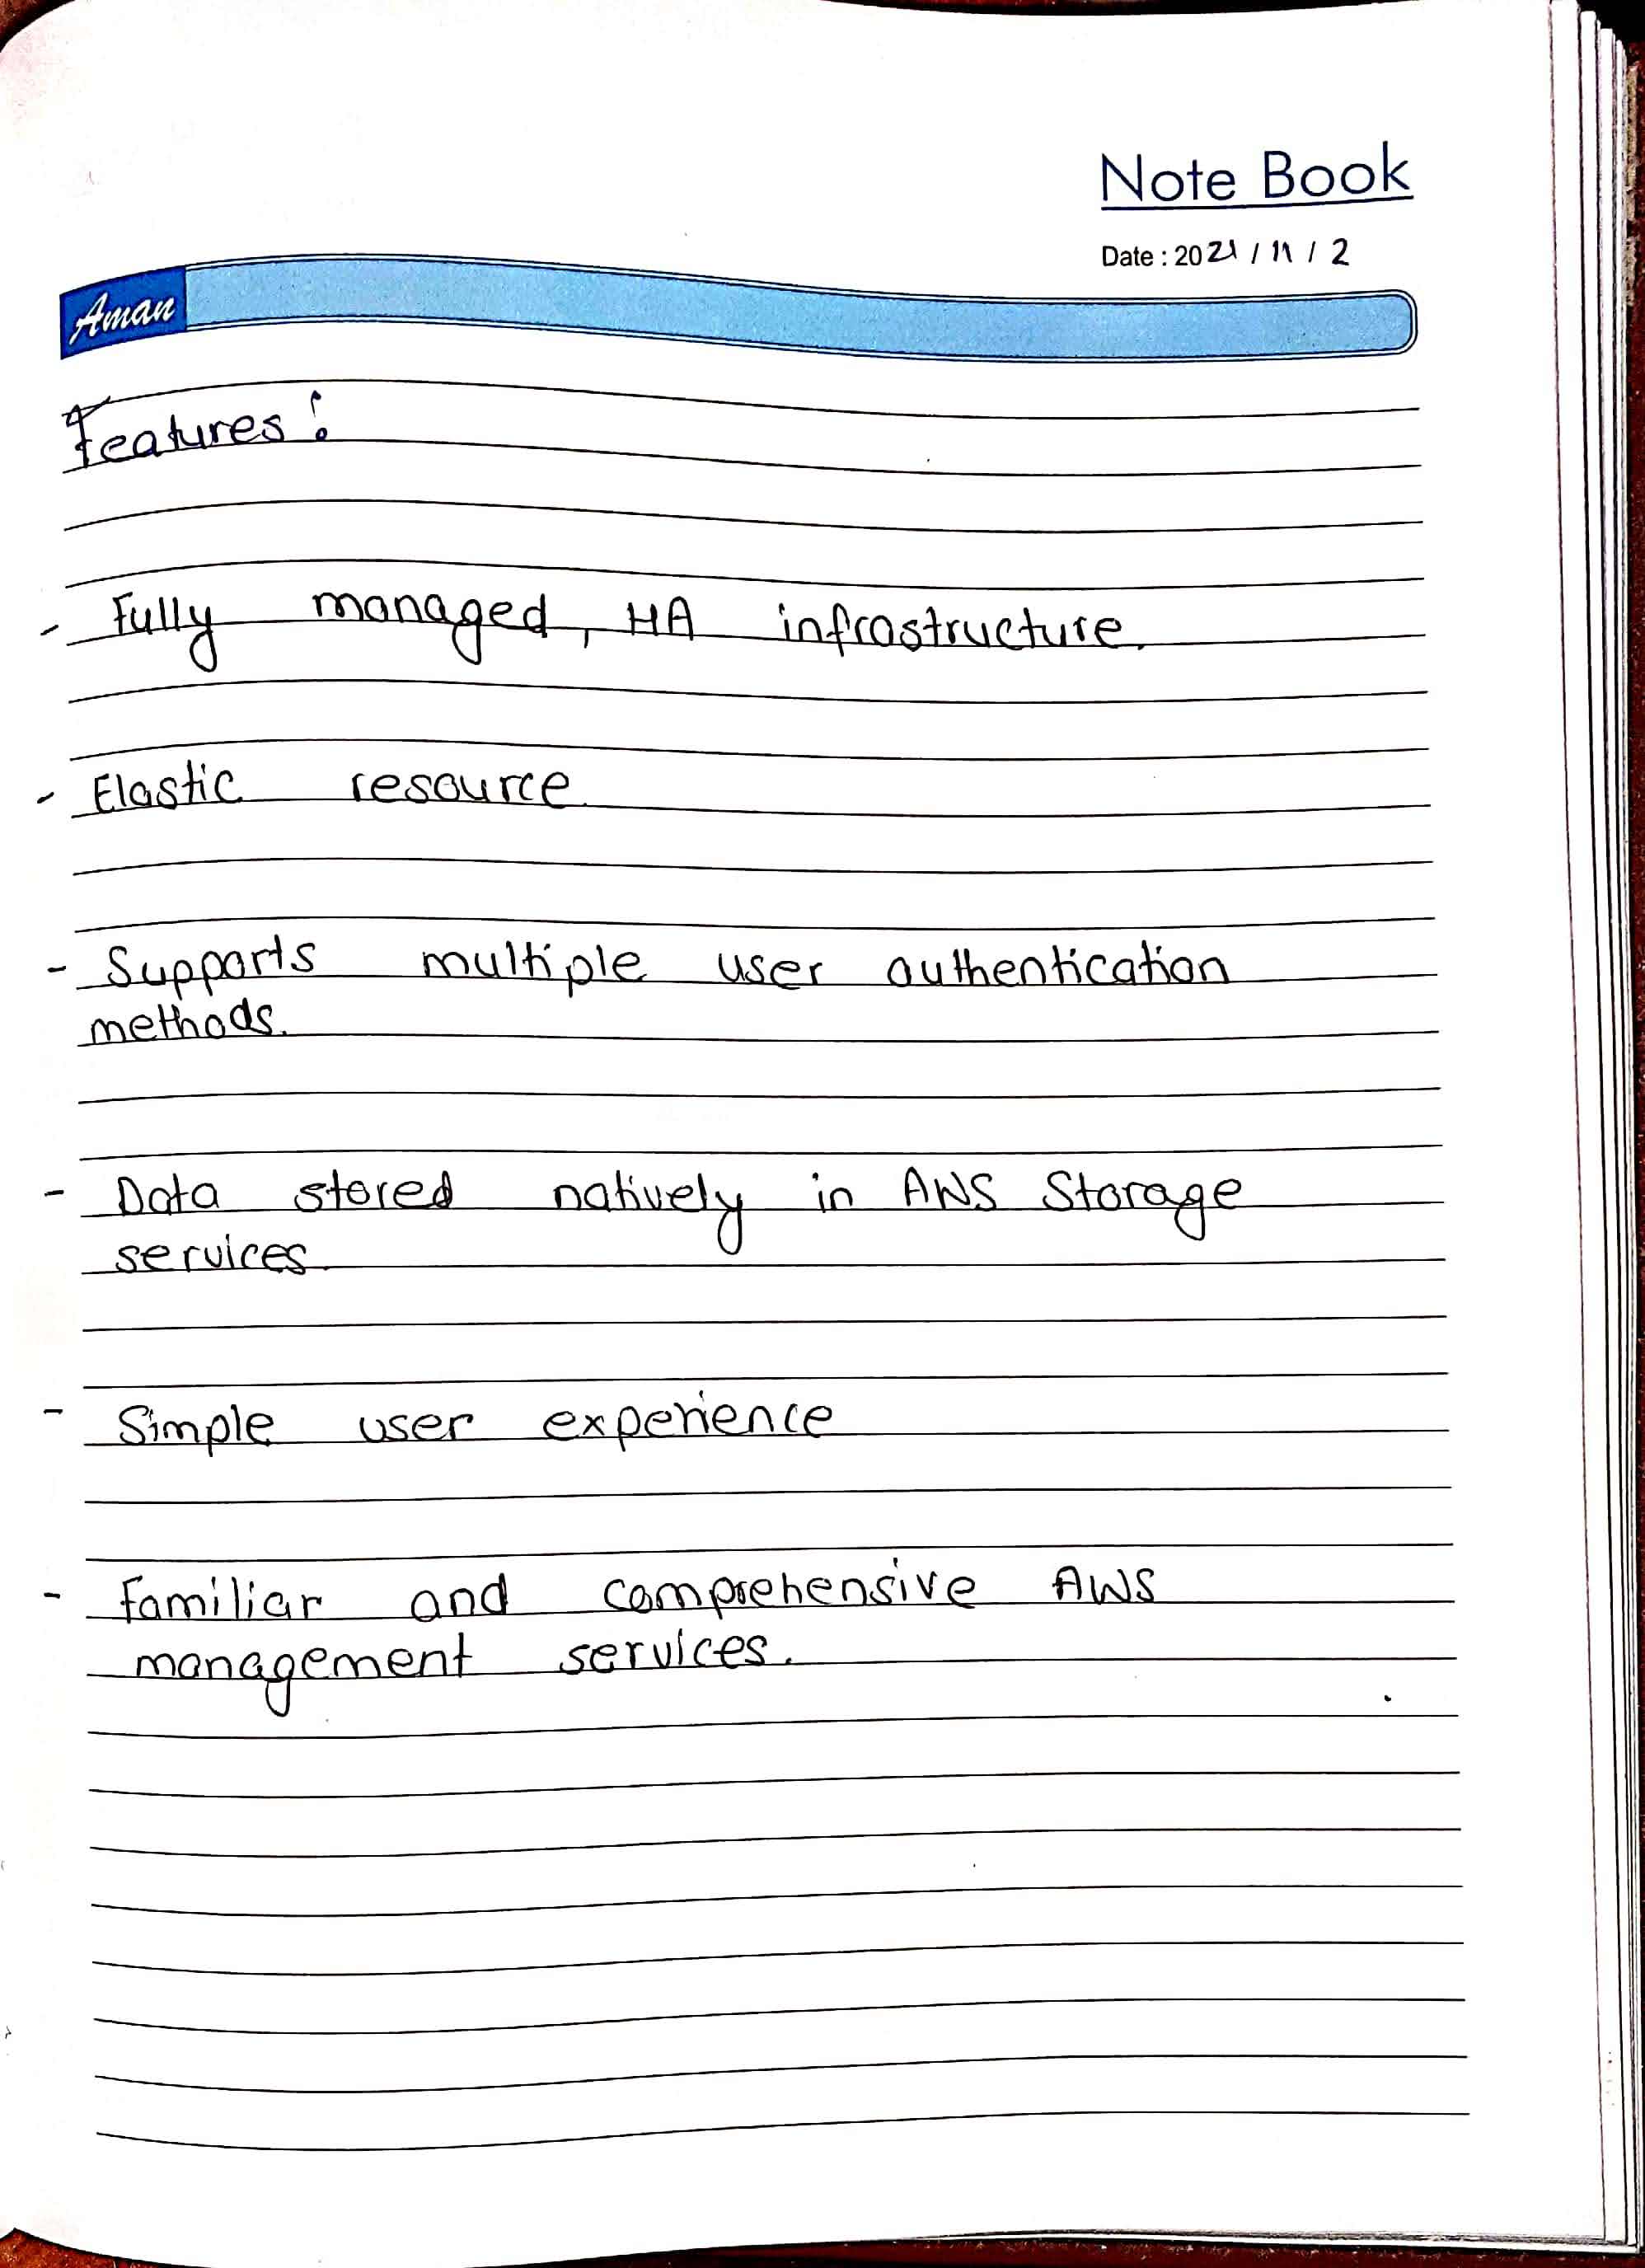 Note Book
Date : 2021 / 11 / 2
Aman
Features:
- Fully managed, HA infrastructure.
- Elastic resource.
- Supports multiple user authentication
methods.
- Data stored natively in AWS Storage
services.
- Simple user experience
- Familiar and comprehensive AWS
management services.